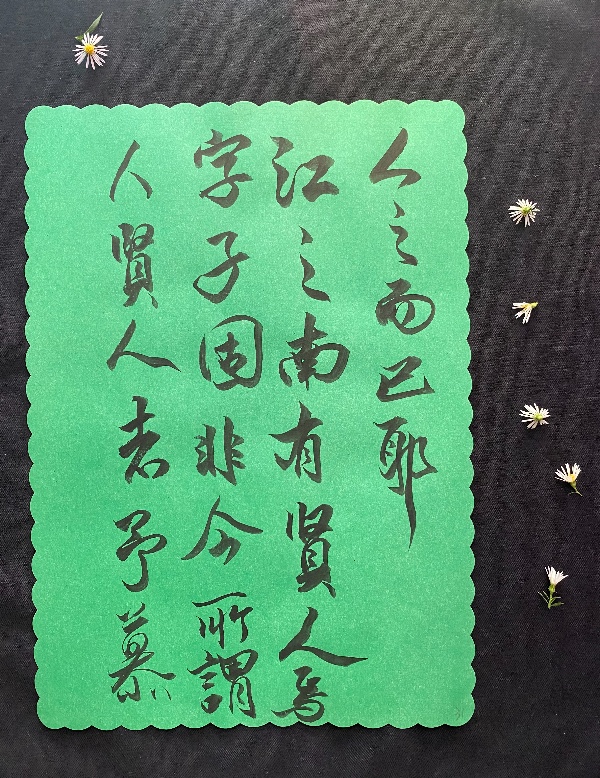 人之而已耶
江之南有賢人焉
字子固非今所謂
人賢人者予慕